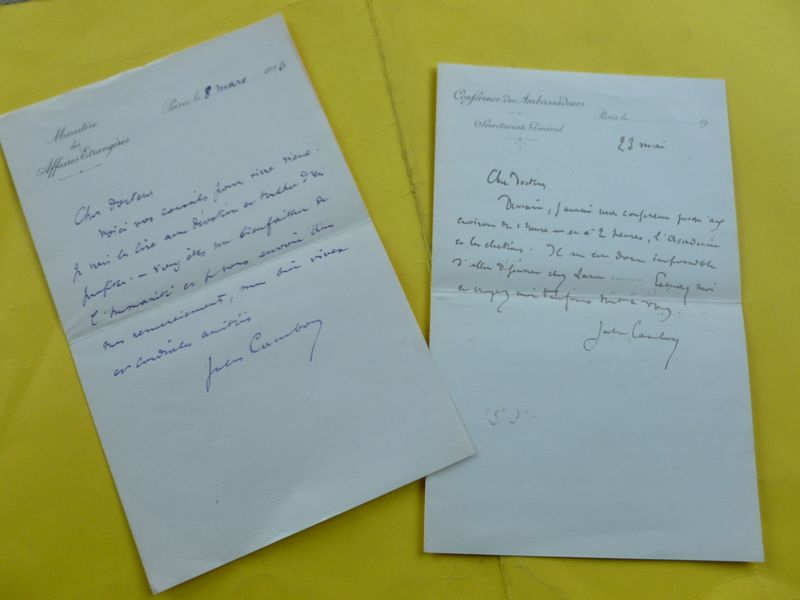 Ministère
des
Affaires Etrangères
Paris, le 8 mars
Cher Docteur
Voici vos conseils pour vivre vieux.
Je vais le lire avec dévotion et tâcher d'en
profiter. — Vous êtes un bienfaiteur de
l'humanité et je vous envoie donc
mes remerciements, mes bien vives
et cordiales amitiés
Jules Cambon
Conférence des Ambassadeurs
Secrétariat Général
Paris, le 19
23 mai
Cher Docteur
Demain, j'aurai une conférence jusqu'aux
environs de 1 heure — et à 2 heures, l'Académie
et les élections. Il m'est donc impossible
d'aller déjeuner chez — Excusez moi
et croyez moi toujours tout à vous.
Jules Cambon